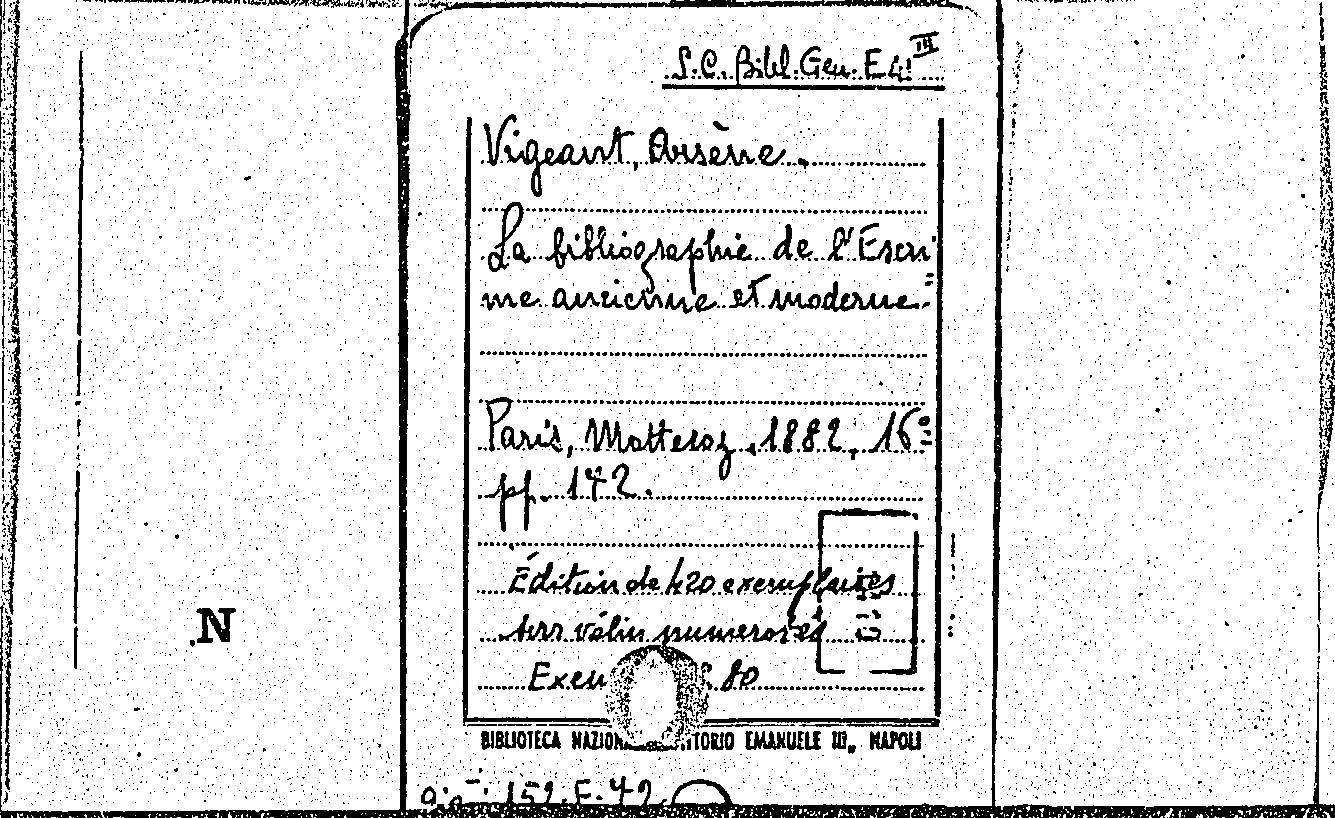 S.C. Bibl. Gen. E 4! III
Vigeant, Arsène.
La bibliographie de l'Escri
me ancienne et moderne.
Paris, Motteroz, 1882, 16°
pp. 142.
Édition de 420 exemplaires
sur vélin numerotés
80
BIBLIOTECA EMANUELE III„ NAPOLI
152.E.42
N